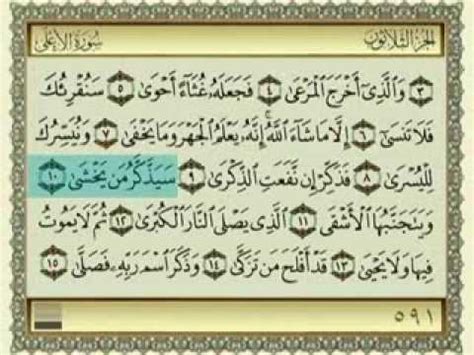 الجزء الثلاثون سورة الأعلى
٣ وَالَّذِىٓ أَخْرَجَ الْمَرْعَىٰ ٤ فَجَعَلَهُۥ غُثَآءً أَحْوَىٰ ٥ سَنُقْرِئُكَ
فَلَا تَنسَىٰٓ ٦ إِلَّا مَا شَآءَ اللَّهُ إِنَّهُۥ يَعْلَمُ الْجَهْرَ وَمَا يَخْفَىٰ ٧ وَنُيَسِّرُكَ
لِلْيُسْرَىٰ ٨ فَذَكِّرْ إِن نَّفَعَتِ الذِّكْرَىٰ ٩ سَيَذَّكَّرُ مَن يَخْشَىٰ ١٠
وَيَتَجَنَّبُهَا الْأَشْقَى ١١ الَّذِى يَصْلَى النَّارَ الْكُبْرَىٰ ١٢ ثُمَّ لَا يَمُوتُ
فِيهَا وَلَا يَحْيَىٰ ١٣ قَدْ أَفْلَحَ مَن تَزَكَّىٰ ١٤ وَذَكَرَ اسْمَ رَبِّهِۦ فَصَلَّىٰ ١٥
٥٩١